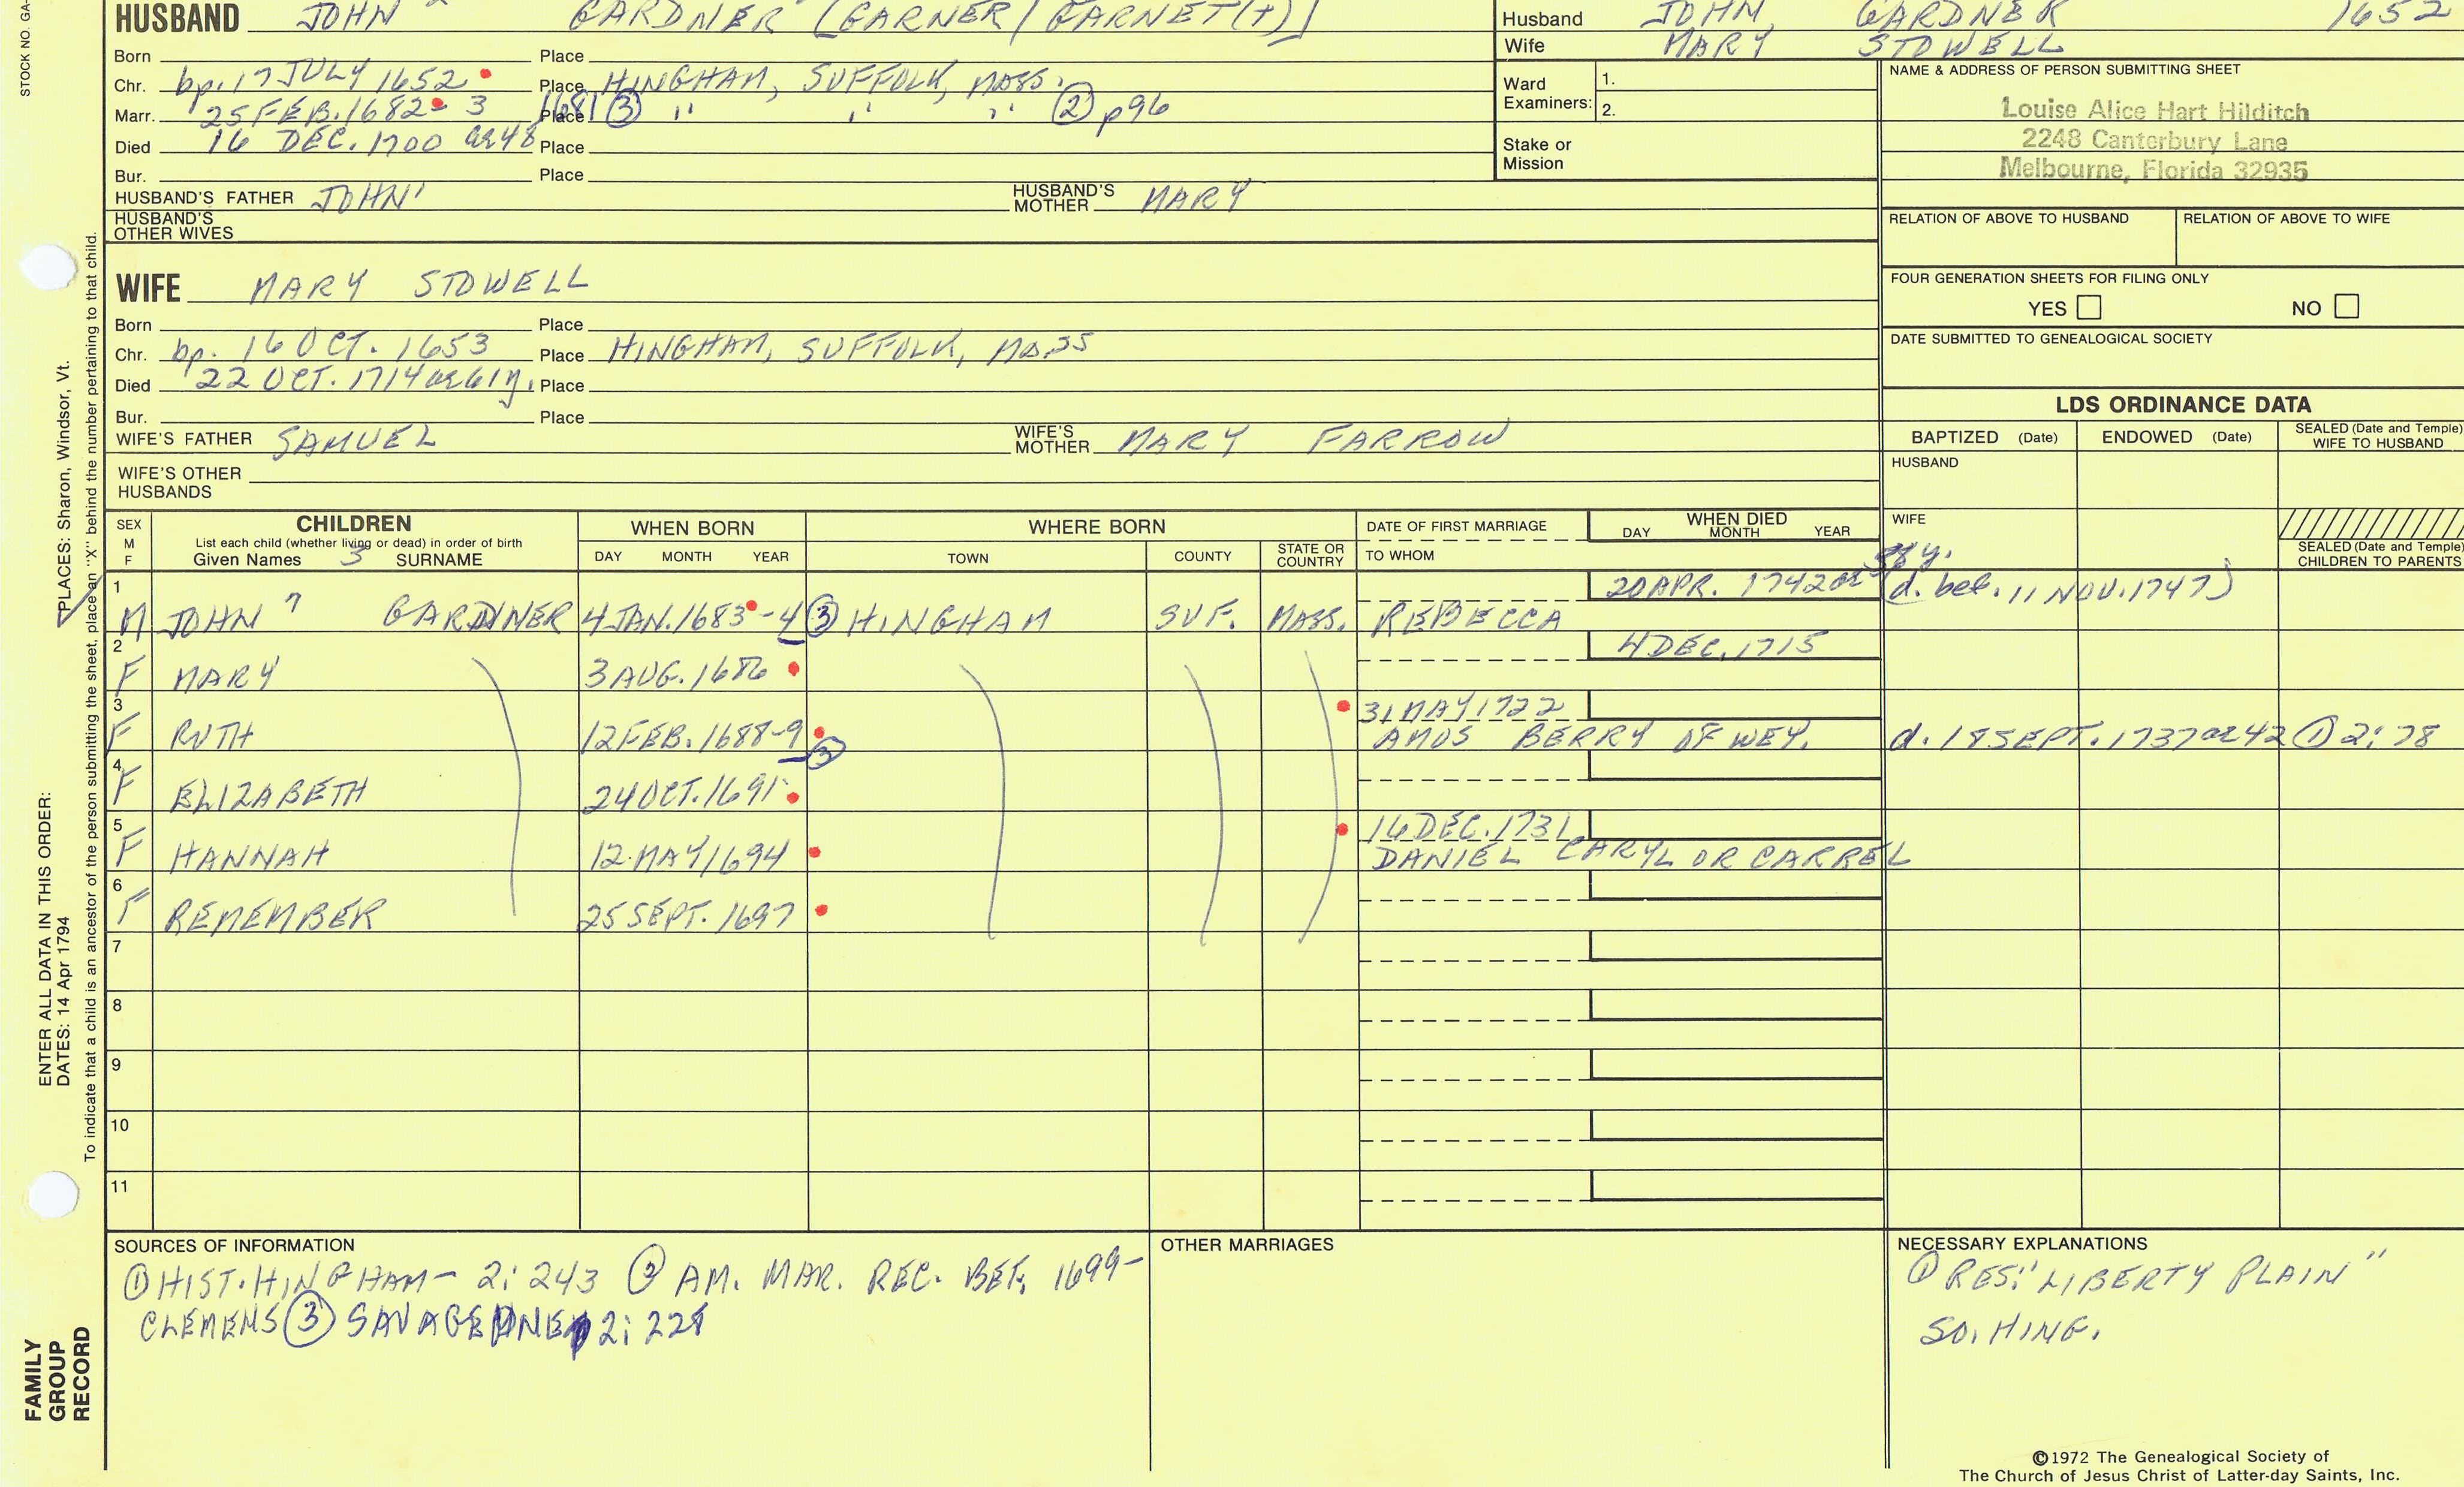 STOCK NO. GA-
HUSBAND JOHN 2 GARDNER [GARNER/GARNET(T)]
Born Place
Chr. bp. 17 JULY 1652 Place HINGHAM, SUFFOLK, MASS.
Marr. 25 FEB. 1682-3 1681 (3) Place " " " (2) p96
Died 16 DEC. 1700 ae 48 Place
Bur. Place
HUSBAND'S FATHER JOHN 1 HUSBAND'S MOTHER MARY
HUSBAND'S OTHER WIVES
Husband JOHN GARDNER 1652
Wife MARY STOWELL
Ward Examiners: 1.
2.
Stake or Mission
NAME & ADDRESS OF PERSON SUBMITTING SHEET
Louise Alice Hart Hilditch
2248 Canterbury Lane
Melbourne, Florida 32935
RELATION OF ABOVE TO HUSBAND RELATION OF ABOVE TO WIFE
FOUR GENERATION SHEETS FOR FILING ONLY
YES NO
DATE SUBMITTED TO GENEALOGICAL SOCIETY
WIFE MARY STOWELL
Born Place
Chr. bp. 16 OCT. 1653 Place HINGHAM, SUFFOLK, MASS
Died 22 OCT. 1714 ae 61 y. Place
Bur. Place
WIFE'S FATHER SAMUEL WIFE'S MOTHER MARY FARROW
WIFE'S OTHER HUSBANDS
LDS ORDINANCE DATA
BAPTIZED (Date) ENDOWED (Date) SEALED (Date and Temple) WIFE TO HUSBAND
HUSBAND
WIFE
SEALED (Date and Temple) CHILDREN TO PARENTS
SEX M F CHILDREN WHEN BORN WHERE BORN DATE OF FIRST MARRIAGE WHEN DIED
List each child (whether living or dead) in order of birth DAY MONTH YEAR
Given Names 3 SURNAME DAY MONTH YEAR TOWN COUNTY STATE OR COUNTRY TO WHOM
1 20 APR. 1742 ae 58 y. (d. bef. 11 NOV. 1747)
M JOHN GARDNER 4 JAN. 1683-4 (3) HINGHAM SUF. MASS. REBECCA
2 4 DEC. 1715
F MARY 3 AUG. 1686
3 31 MAY 1722
F RUTH 12 FEB. 1688-9 (3) AMOS BERRY OF WEY. d. 18 SEPT. 1737 ae 42 (1) 2:78
4
F ELIZABETH 24 OCT. 1691
5 16 DEC. 1731
F HANNAH 12 MAY 1694 DANIEL CARYL OR CARREL
6
F REMEMBER 25 SEPT. 1697
7
8
9
10
11
SOURCES OF INFORMATION
(1) HIST. HINGHAM - 2:243 (2) AM. MAR. REC. BEF. 1699-
CLEMENS (3) SAVAGE 2:228
OTHER MARRIAGES
NECESSARY EXPLANATIONS
(1) RES. "LIBERTY PLAIN"
SO. HING.
©1972 The Genealogical Society of
The Church of Jesus Christ of Latter-day Saints, Inc.
ENTER ALL DATA IN THIS ORDER:
DATES: 14 Apr 1794
PLACES: Sharon, Windsor, Vt.
To indicate that a child is an ancestor of the person submitting the sheet, place an "X" behind the number pertaining to that child.
FAMILY
GROUP
RECORD